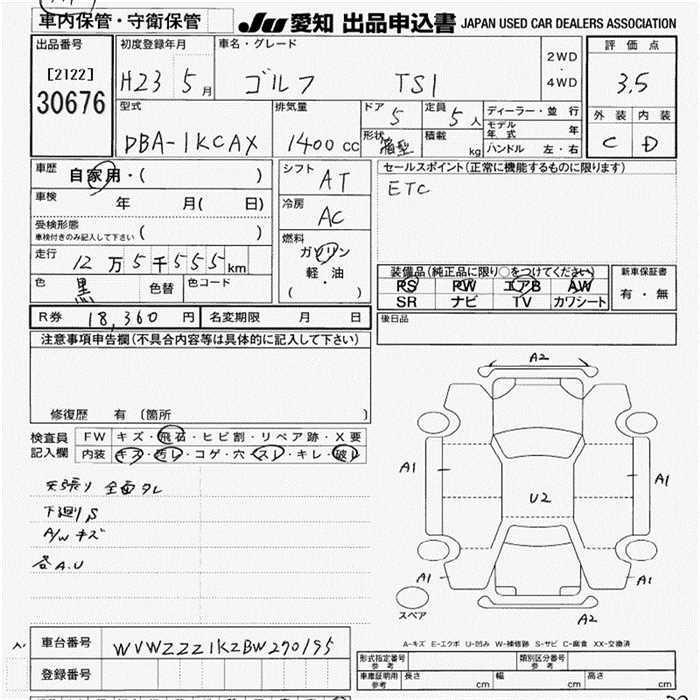 車内保管・守衛保管
JU 愛知 出品申込書 JAPAN USED CAR DEALERS ASSOCIATION
出品番号
[2122]
30676
初度登録年月
H23 5月
車名・グレード
ゴルフ TSI
2WD
・
4WD
評価点
3.5
外装 内装
C D
型式
DBA-1KCAX
排気量
1400 cc
ドア
5
定員
5人
形状
箱型
積載
kg
ディーラー・並行
モデル年式 年
ハンドル 左・右
車歴
自家用・( )
車検
年 月( 日)
受検形態
車検付きのみ記入して下さい ( )
走行
12万5千555km
色
黒
色替
色コード
シフト
AT
冷房
AC
燃料
ガソリン
軽・油
( )
セールスポイント(正常に機能するものに限ります)
ETC
装備品(純正品に限り○をつけてください)
PS PW エアB AW
SR ナビ TV カワシート
新車保証書
有・無
R券 18,360円
名変期限 月 日
後日品
注意事項申告欄(不具合内容等は具体的に記入して下さい)
修復歴 有 〔箇所 〕
検査員
記入欄
FW キズ・飛石・ヒビ割・リペア跡・X要
内装 キズ・汚レ・コゲ・穴・スレ・キレ・破レ
天張り 全面タレ
下廻りS
A/W キズ
各A.U
A2
A1
A1
U2
A1
A1
A2
スペア
A-キズ E-エクボ U-凹み W-補修跡 S-サビ C-腐食 XX-交換済
車台番号
WVWZZZ1KZBW270195
登録番号
形式指定番号
参考
類別区分番号
参考
車庫証明用
参考
長さ cm 幅 cm 高さ cm